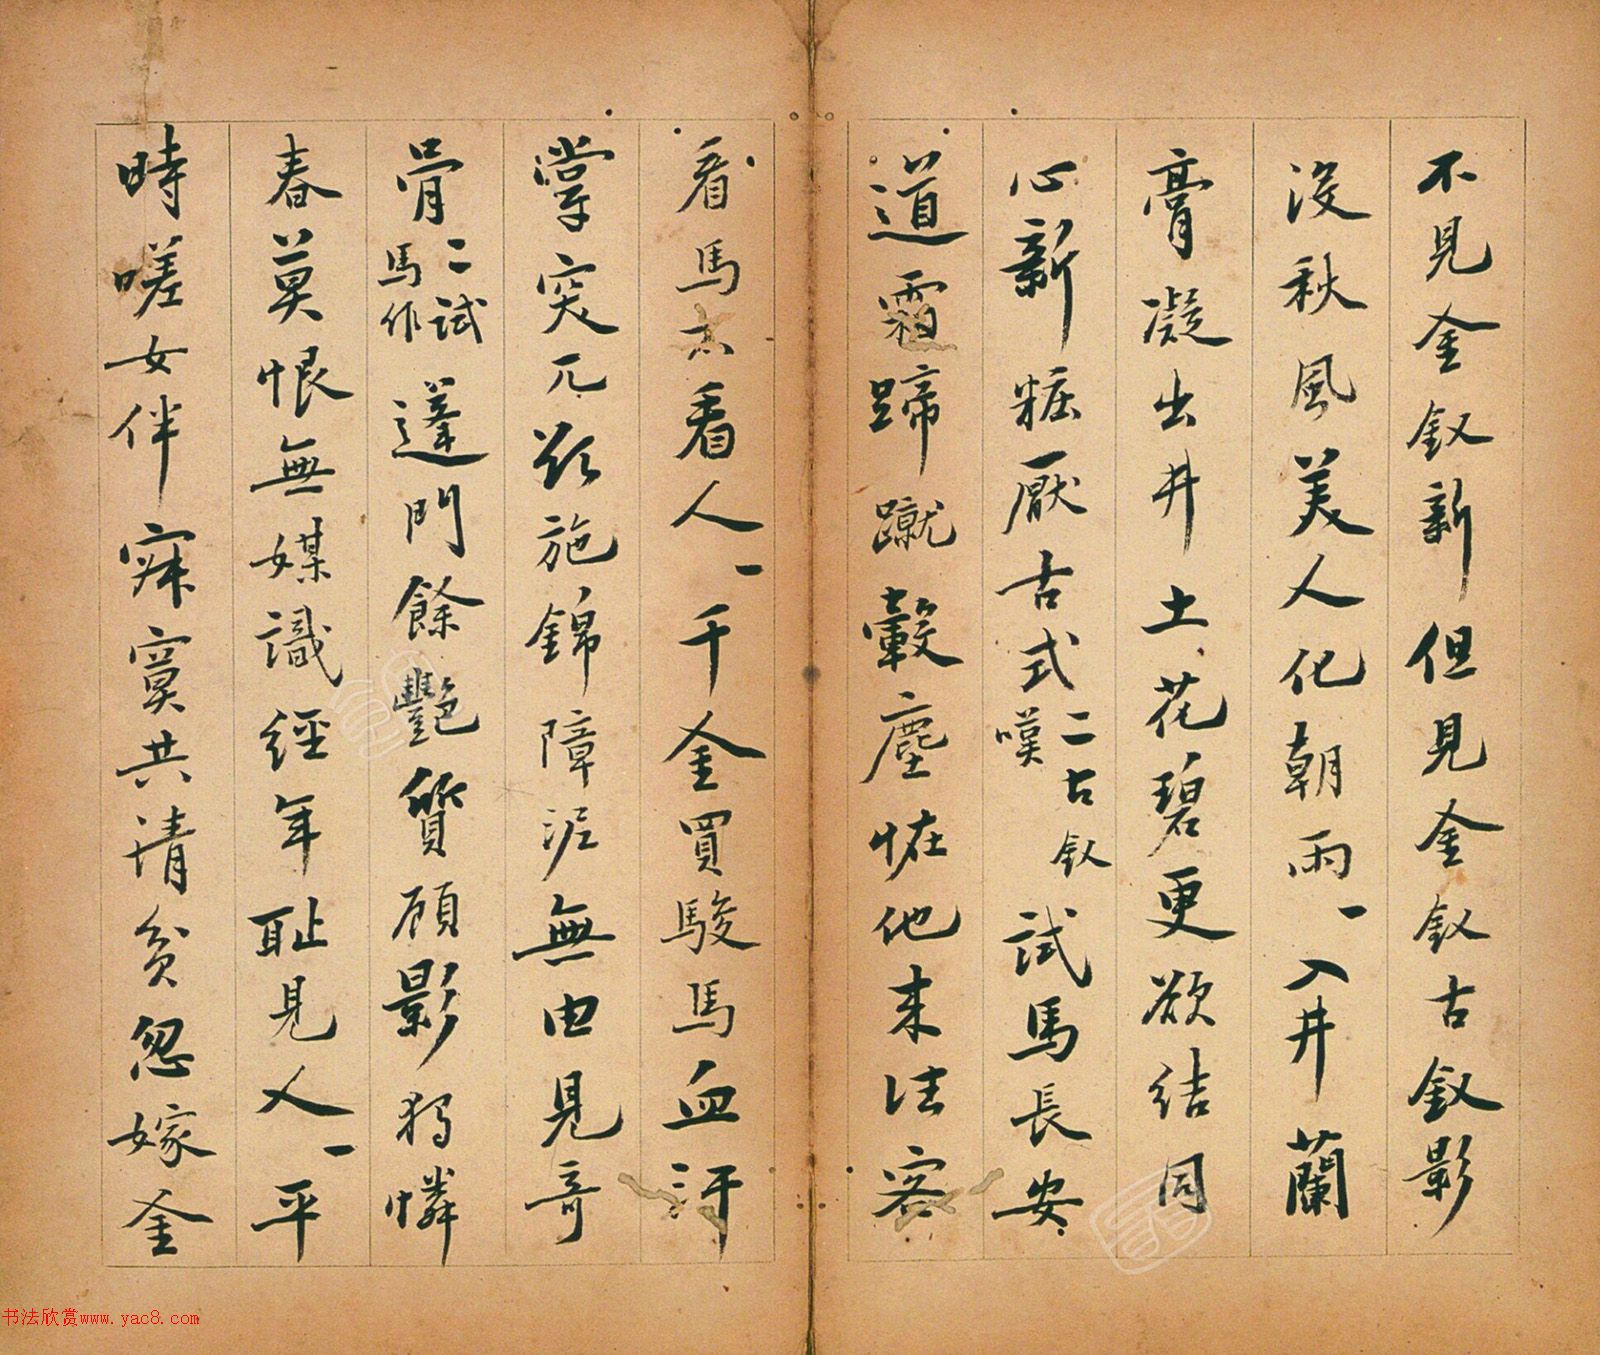 不見金釵新但見金釵古釵影
沒秋風美人化朝雨一入井蘭
膏凝出井土花碧更欲結同
心新粧厭古式二古釵嘆試馬長安
道霜蹄蹴轂塵怪他来往客
看馬不看人一千金買駿馬血汗
掌突兀欲施錦障泥無由見奇
骨二試馬作蓬門餘艷質顧影獨憐
春莫恨無媒識經年耻見人一平
時嗟女伴寂寞共清貧忽嫁金
书法欣赏www.yac8.com